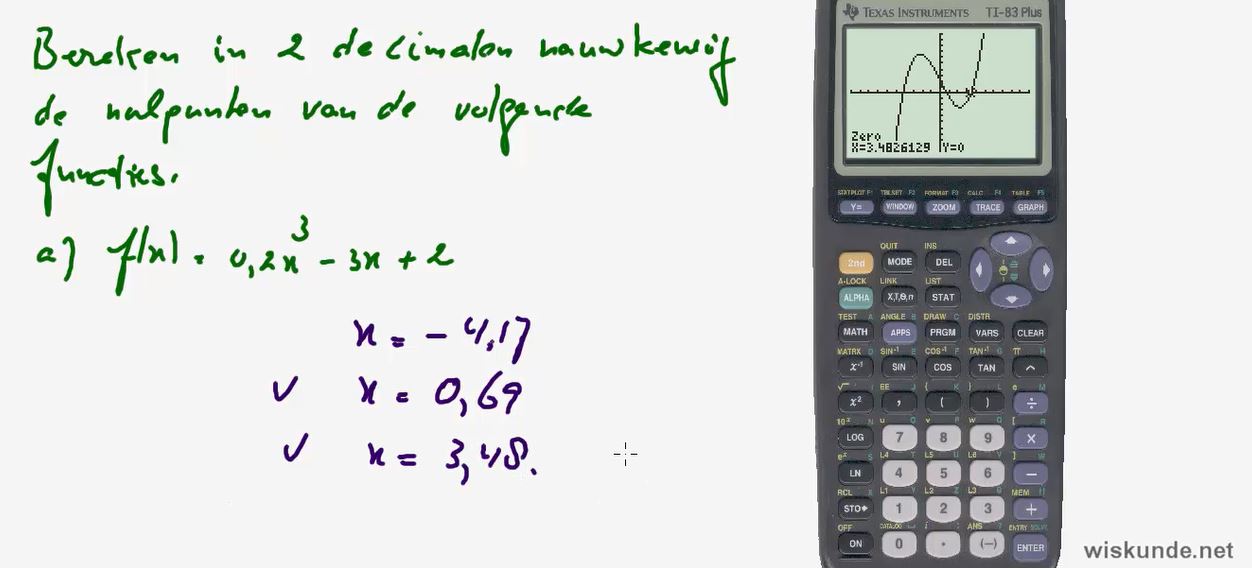 Bereken in 2 decimalen nauwkeurig
de nulpunten van de volgende
functies.
a) f(x) = 0,2x³ - 3x + 2
x = - 4,17
v x = 0,69
v x = 3,48.
TEXAS INSTRUMENTS TI-83 Plus
Zero
X=3.4826129 Y=0
STATPLOT F1 TBLSET F2 FORMAT F3 CALC F4 TABLE F5
Y= WINDOW ZOOM TRACE GRAPH
QUIT INS
2nd MODE DEL
A-LOCK LINK LIST
ALPHA X,T,Θ,n STAT
TEST A ANGLE B DRAW C DISTR
MATH APPS PRGM VARS CLEAR
MATRX D SIN⁻¹ E COS⁻¹ F TAN⁻¹ G π H
x⁻¹ SIN COS TAN ^
√ I EE J { K } L e M
x² , ( ) ÷
10ˣ N u O v P w Q [ R
LOG 7 8 9 ×
eˣ S L4 T L5 U L6 V ] W
LN 4 5 6 −
RCL X L1 Y L2 Z L3 θ MEM "
STO▸ 1 2 3 +
OFF CATALOG i : ANS ? ENTRY SOLVE
ON 0 . (−) ENTER
wiskunde.net